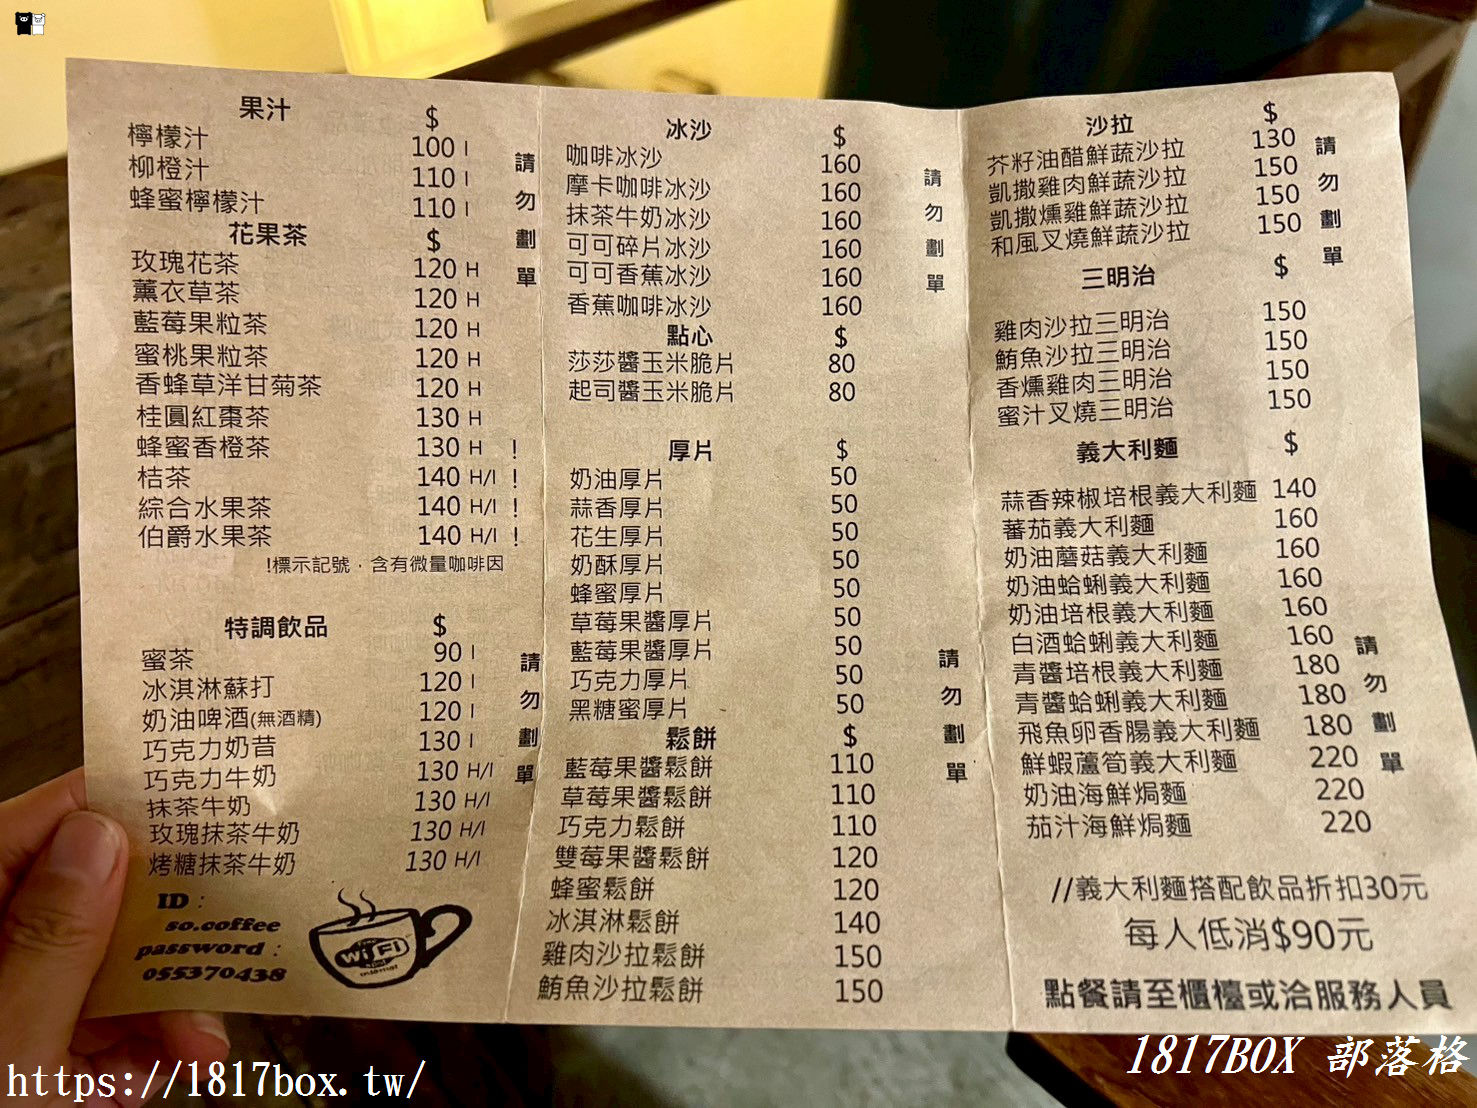 果汁 $
檸檬汁 100 I
柳橙汁 110 I
蜂蜜檸檬汁 110 I
請勿劃單
花果茶 $
玫瑰花茶 120 H
薰衣草茶 120 H
藍莓果粒茶 120 H
蜜桃果粒茶 120 H
香蜂草洋甘菊茶 120 H
桂圓紅棗茶 130 H
蜂蜜香橙茶 130 H !
桔茶 140 H/I !
綜合水果茶 140 H/I !
伯爵水果茶 140 H/I !
!標示記號，含有微量咖啡因
特調飲品 $
蜜茶 90 I
冰淇淋蘇打 120 I
奶油啤酒(無酒精) 120 I
巧克力奶昔 130 I
巧克力牛奶 130 H/I
抹茶牛奶 130 H/I
玫瑰抹茶牛奶 130 H/I
烤糖抹茶牛奶 130 H/I
請勿劃單
ID :
so.coffee
password :
055370438
WiFi
冰沙 $
咖啡冰沙 160
摩卡咖啡冰沙 160
抹茶牛奶冰沙 160
可可碎片冰沙 160
可可香蕉冰沙 160
香蕉咖啡冰沙 160
請勿劃單
點心 $
莎莎醬玉米脆片 80
起司醬玉米脆片 80
厚片 $
奶油厚片 50
蒜香厚片 50
花生厚片 50
奶酥厚片 50
蜂蜜厚片 50
草莓果醬厚片 50
藍莓果醬厚片 50
巧克力厚片 50
黑糖蜜厚片 50
請勿劃單
鬆餅 $
藍莓果醬鬆餅 110
草莓果醬鬆餅 110
巧克力鬆餅 110
雙莓果醬鬆餅 120
蜂蜜鬆餅 120
冰淇淋鬆餅 140
雞肉沙拉鬆餅 150
鮪魚沙拉鬆餅 150
沙拉 $
芥籽油醋鮮蔬沙拉 130
凱撒雞肉鮮蔬沙拉 150
凱撒燻雞鮮蔬沙拉 150
和風叉燒鮮蔬沙拉 150
請勿劃單
三明治 $
雞肉沙拉三明治 150
鮪魚沙拉三明治 150
香燻雞肉三明治 150
蜜汁叉燒三明治 150
義大利麵 $
蒜香辣椒培根義大利麵 140
蕃茄義大利麵 160
奶油蘑菇義大利麵 160
奶油蛤蜊義大利麵 160
奶油培根義大利麵 160
白酒蛤蜊義大利麵 160
青醬培根義大利麵 180
青醬蛤蜊義大利麵 180
飛魚卵香腸義大利麵 180
鮮蝦蘆筍義大利麵 220
奶油海鮮焗麵 220
茄汁海鮮焗麵 220
請勿劃單
//義大利麵搭配飲品折扣30元
每人低消$90元
點餐請至櫃檯或洽服務人員
1817BOX 部落格
https://1817box.tw/